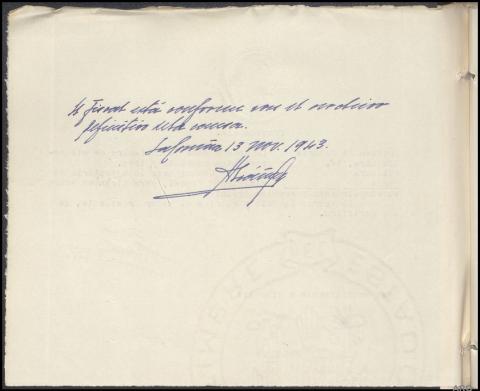 El Fiscal está conforme con el archivo
definitivo esta causa.
La Coruña 13 Nov. 1943.